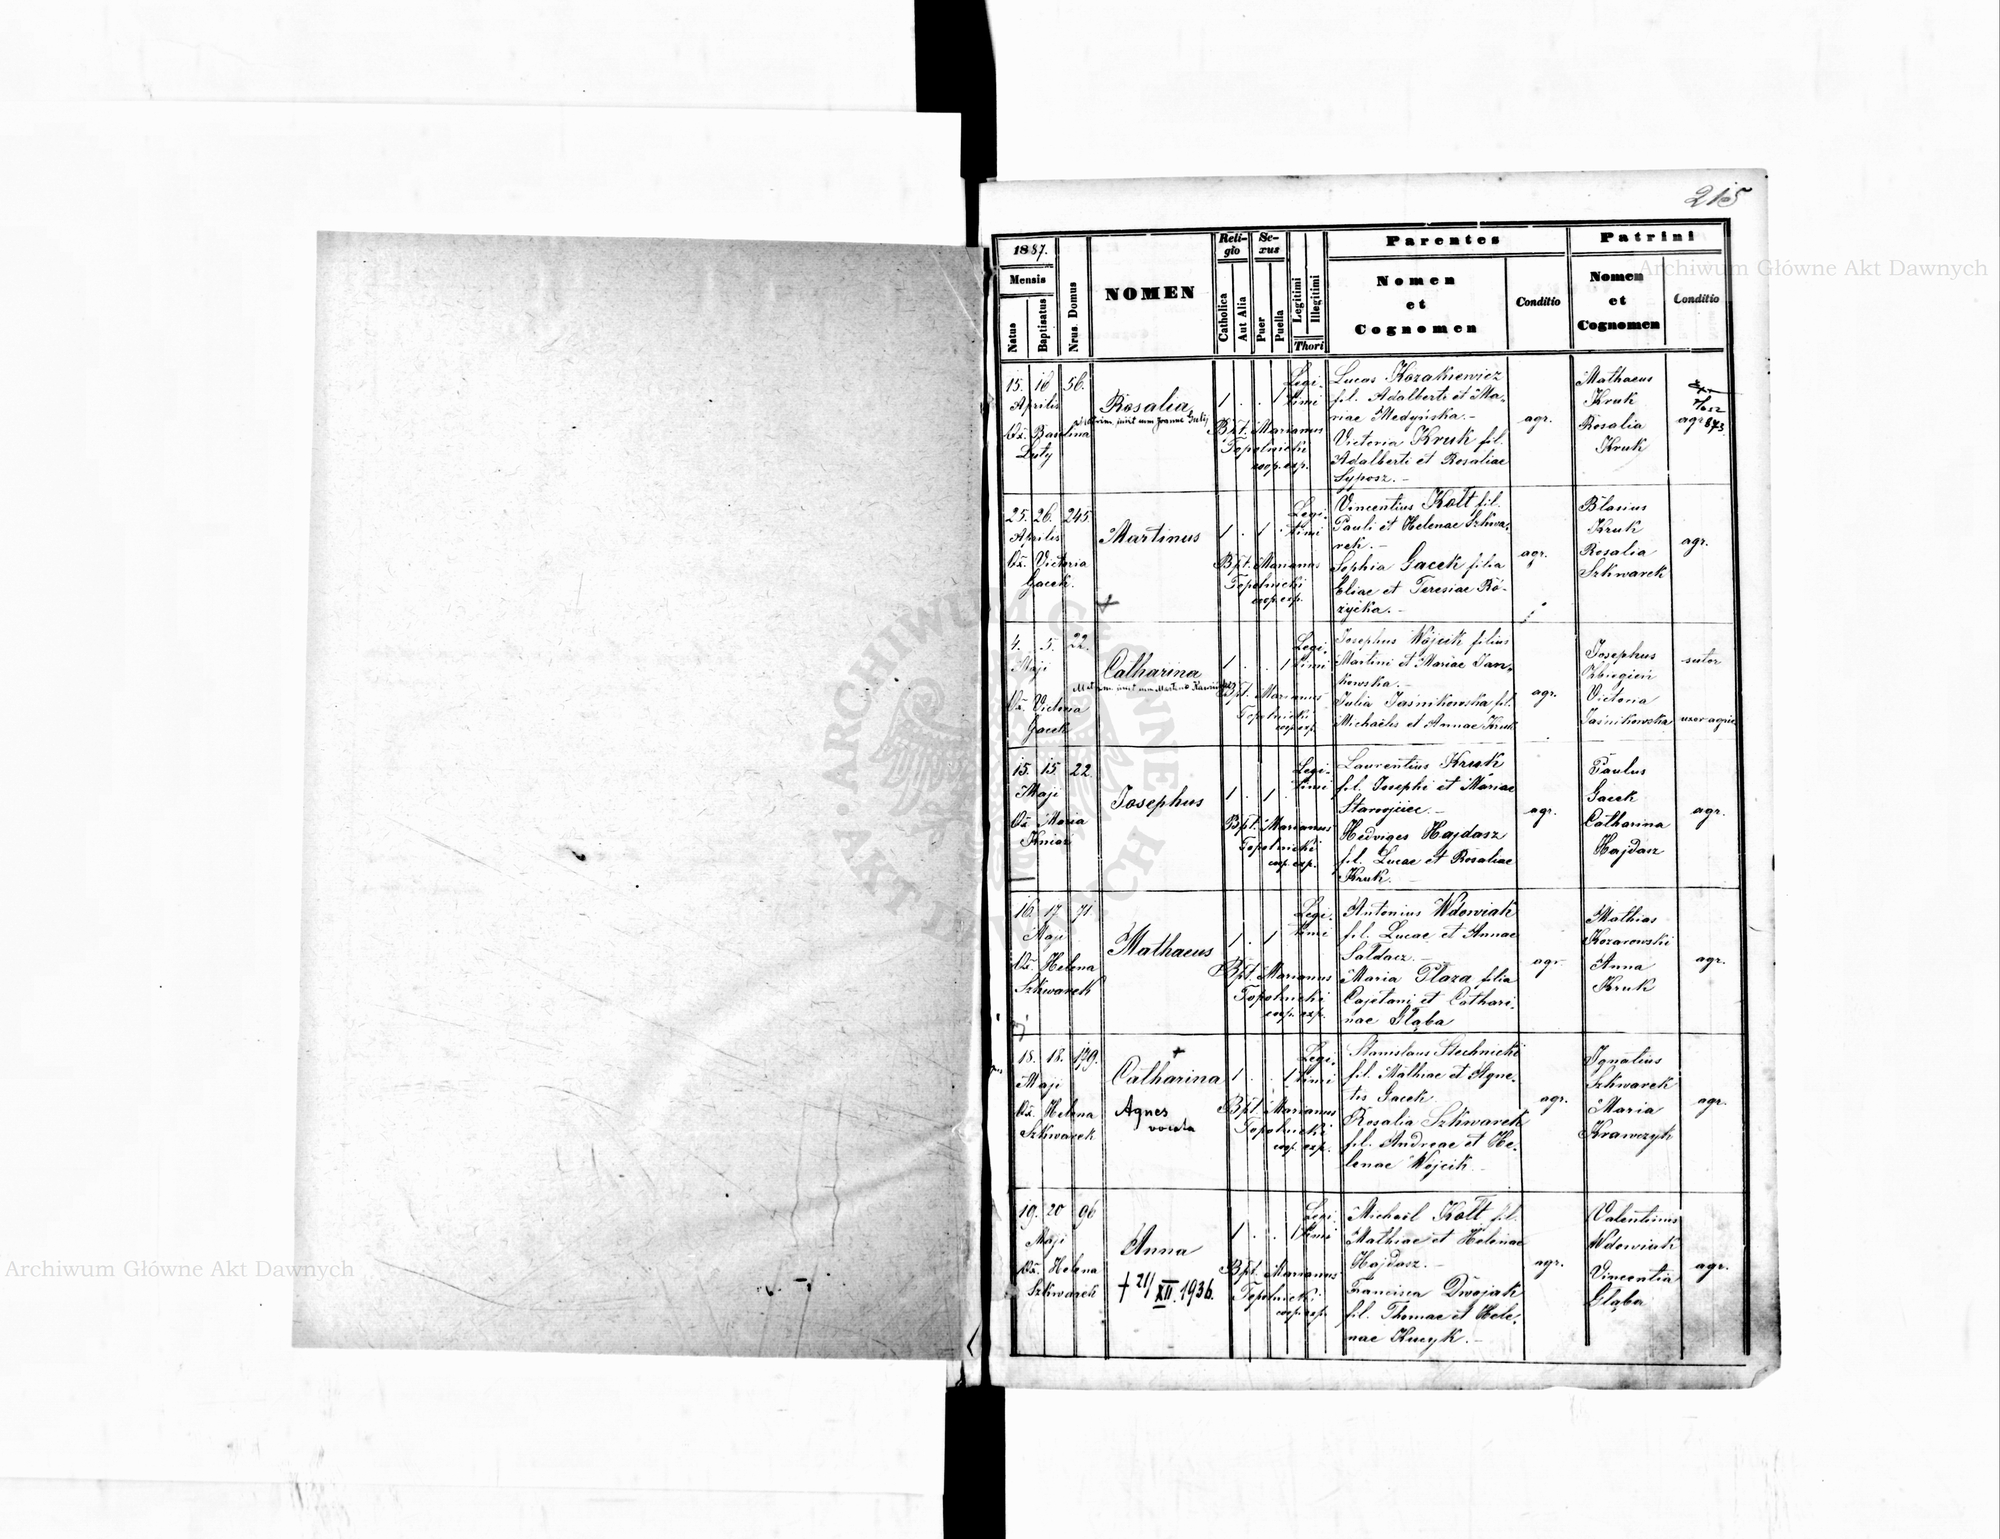 215
Archiwum Główne Akt Dawnych
1887.
Mensis
Natus
Baptisatus
Nrus. Domus
NOMEN
Reli-
gio
Catholica
Aut Alia
Se-
xus
Puer
Puella
Legitimi
Illegitimi
Thori
Parentes
Nomen
et
Cognomen
Conditio
Patrini
Nomen
et
Cognomen
Conditio
15. 16 56.
Aprilis
Obst. Paulina
Luty
Rosalia
1 . . 1
Legi-
timi
Bpt. Marianus
Topolnicki
coop. exp.
Lucas Kozakiewicz
fil. Adalberti et Ma-
riae Medyńska.-
Victoria Kruk fil.
Adalberti et Rosaliae
Syposz.-
agr.
Mathaeus
Kruk
Rosalia
Kruk
agr.
25. 26. 245.
Aprilis
Obst. Victoria
Gacek.
Martinus
1 . 1 .
Legi-
timi
Bpt. Marianus
Topolnicki
coop. exp.
Vincentius Kott fil.
Pauli et Helenae Szkwa-
rek.-
Sophia Gacek filia
Eliae et Teresiae Ró-
życka.-
agr.
Blasius
Kruk
Rosalia
Szkwarek
agr.
4. 5. 22.
Maji
Victoria
Gacek
Catharina
1 . . 1
Legi-
timi
Bpt. Marianus
Topolnicki
coop. exp.
Josephus Wójcik filius
Martini et Mariae Jan-
kowska.-
Julia Jaśnikowska fil.
Michaelis et Annae Kruk
agr.
Josephus
Zbiegień
Victoria
Jaśnikowska
sutor
uxor agric.
15. 15. 22
Maji
Maria
Kniaź
Josephus
1 . 1 .
Legi-
timi
Bpt. Marianus
Topolnicki
coop. exp.
Laurentius Kruk
fil. Josephi et Mariae
Starojciec.-
Hedviges Hajdasz
fil. Lucae et Rosaliae
Kruk.-
agr.
Paulus
Gacek
Catharina
Hajdasz
agr.
16. 17 71.
Maji
Helena
Szkwarek
Mathaeus
1 . 1
Legi-
timi
Bpt. Marianus
Topolnicki
coop. exp.
Antonius Wdowiak
fil. Lucae et Annae
Sałdacz.-
Maria Płaza filia
Cajetani et Cathari-
nae Głąba
agr.
Mathias
Kozarowski
Anna
Kruk
agr.
18. 18. 179.
Maji
Helena
Szkwarek
Catharina
Agnes
vocata
1 . . 1
Legi-
timi
Bpt. Marianus
Topolnicki
coop. exp.
Stanislaus Stechnicki
fil. Mathiae et Agne-
tis Gacek
Rosalia Szkwarek
fil. Andreae et He-
lenae Wójcik.-
agr.
Ignatius
Szkwarek
Maria
Krawczyk
agr.
19. 20 96
Maji
Helena
Szkwarek
Anna
+ 21/XII. 1936.
1 . . 1
Legi-
timi
Bpt. Marianus
Topolnicki
coop. exp.
Michaël Kott fil.
Mathiae et Helenae
Hajdasz.-
Francisca Dwojak
fil. Thomae et Hele-
nae Kucyk.-
agr.
Valentinus
Wdowiak
Vincentia
Głąba
agr.
ARCHIWUM GŁÓWNE AKT DAWNYCH
Archiwum Główne Akt Dawnych